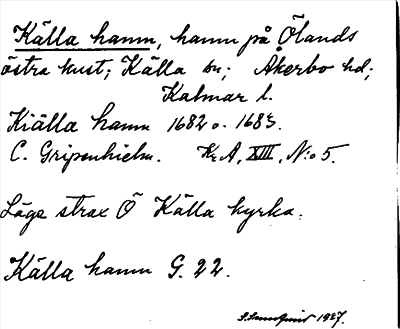 Källa hamn, hamn på Ölands
östra kust; Källa sn; Åkerbo hd;
Kalmar l.
Kiälla hamn 1682 o. 1683.
C. Gripenhielm. Kr A, XIII, No 5.
Låge strax Ö Källa kyrka.
Källa hamn G. 22.
1927.